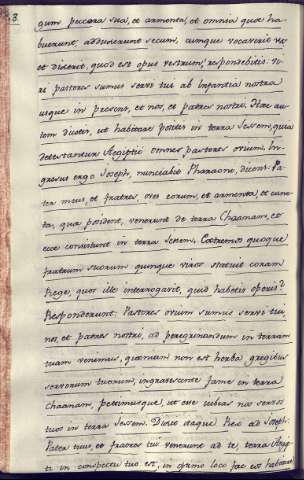 8.
gum peccora sua, et armenta, et omnia quæ ha-
buerunt, adduxerunt secum, cumque vocaverit vos
et dixerit, quod est opus vestrum, respondebitis: vi-
ri pastores sumus servi tui ab infantia nostra
usque in præsens, et nos, et patres nostri. Hæc au-
tem dicetis, ut habitare possitis in terra Gessem, quia
detestantur Ægiptii omnes pastores ovium. In-
gressus ergo Joseph, nunciabit Pharaoni, dicens: Pa-
ter meus, et fratres, oves eorum, et armenta, et cunc-
ta, quæ possident, venerunt de terra Chanaam, et
ecce consistunt in terra Gesem. Extremos quoque
fratrum suorum quinque viros statuit coram
Rege, quos ille interrogavit, quid habetis operis?
Responderunt: Pastores ovium sumus servi tui,
nos, et patres nostri, ad peregrinandum in terram
tuam venimus, quoniam non est herba gregibus
servorum tuorum, ingravescente fame in terra
Chanaam, petimusque, ut esse iubeas nos servos
tuos in terra Gessem. Dixit itaque Rex ad Joseph:
Pater tuus, et fratres tui venerunt ad te, terra Ægyp-
ti in conspectu tuo est, in optimo loco fac eos habitare